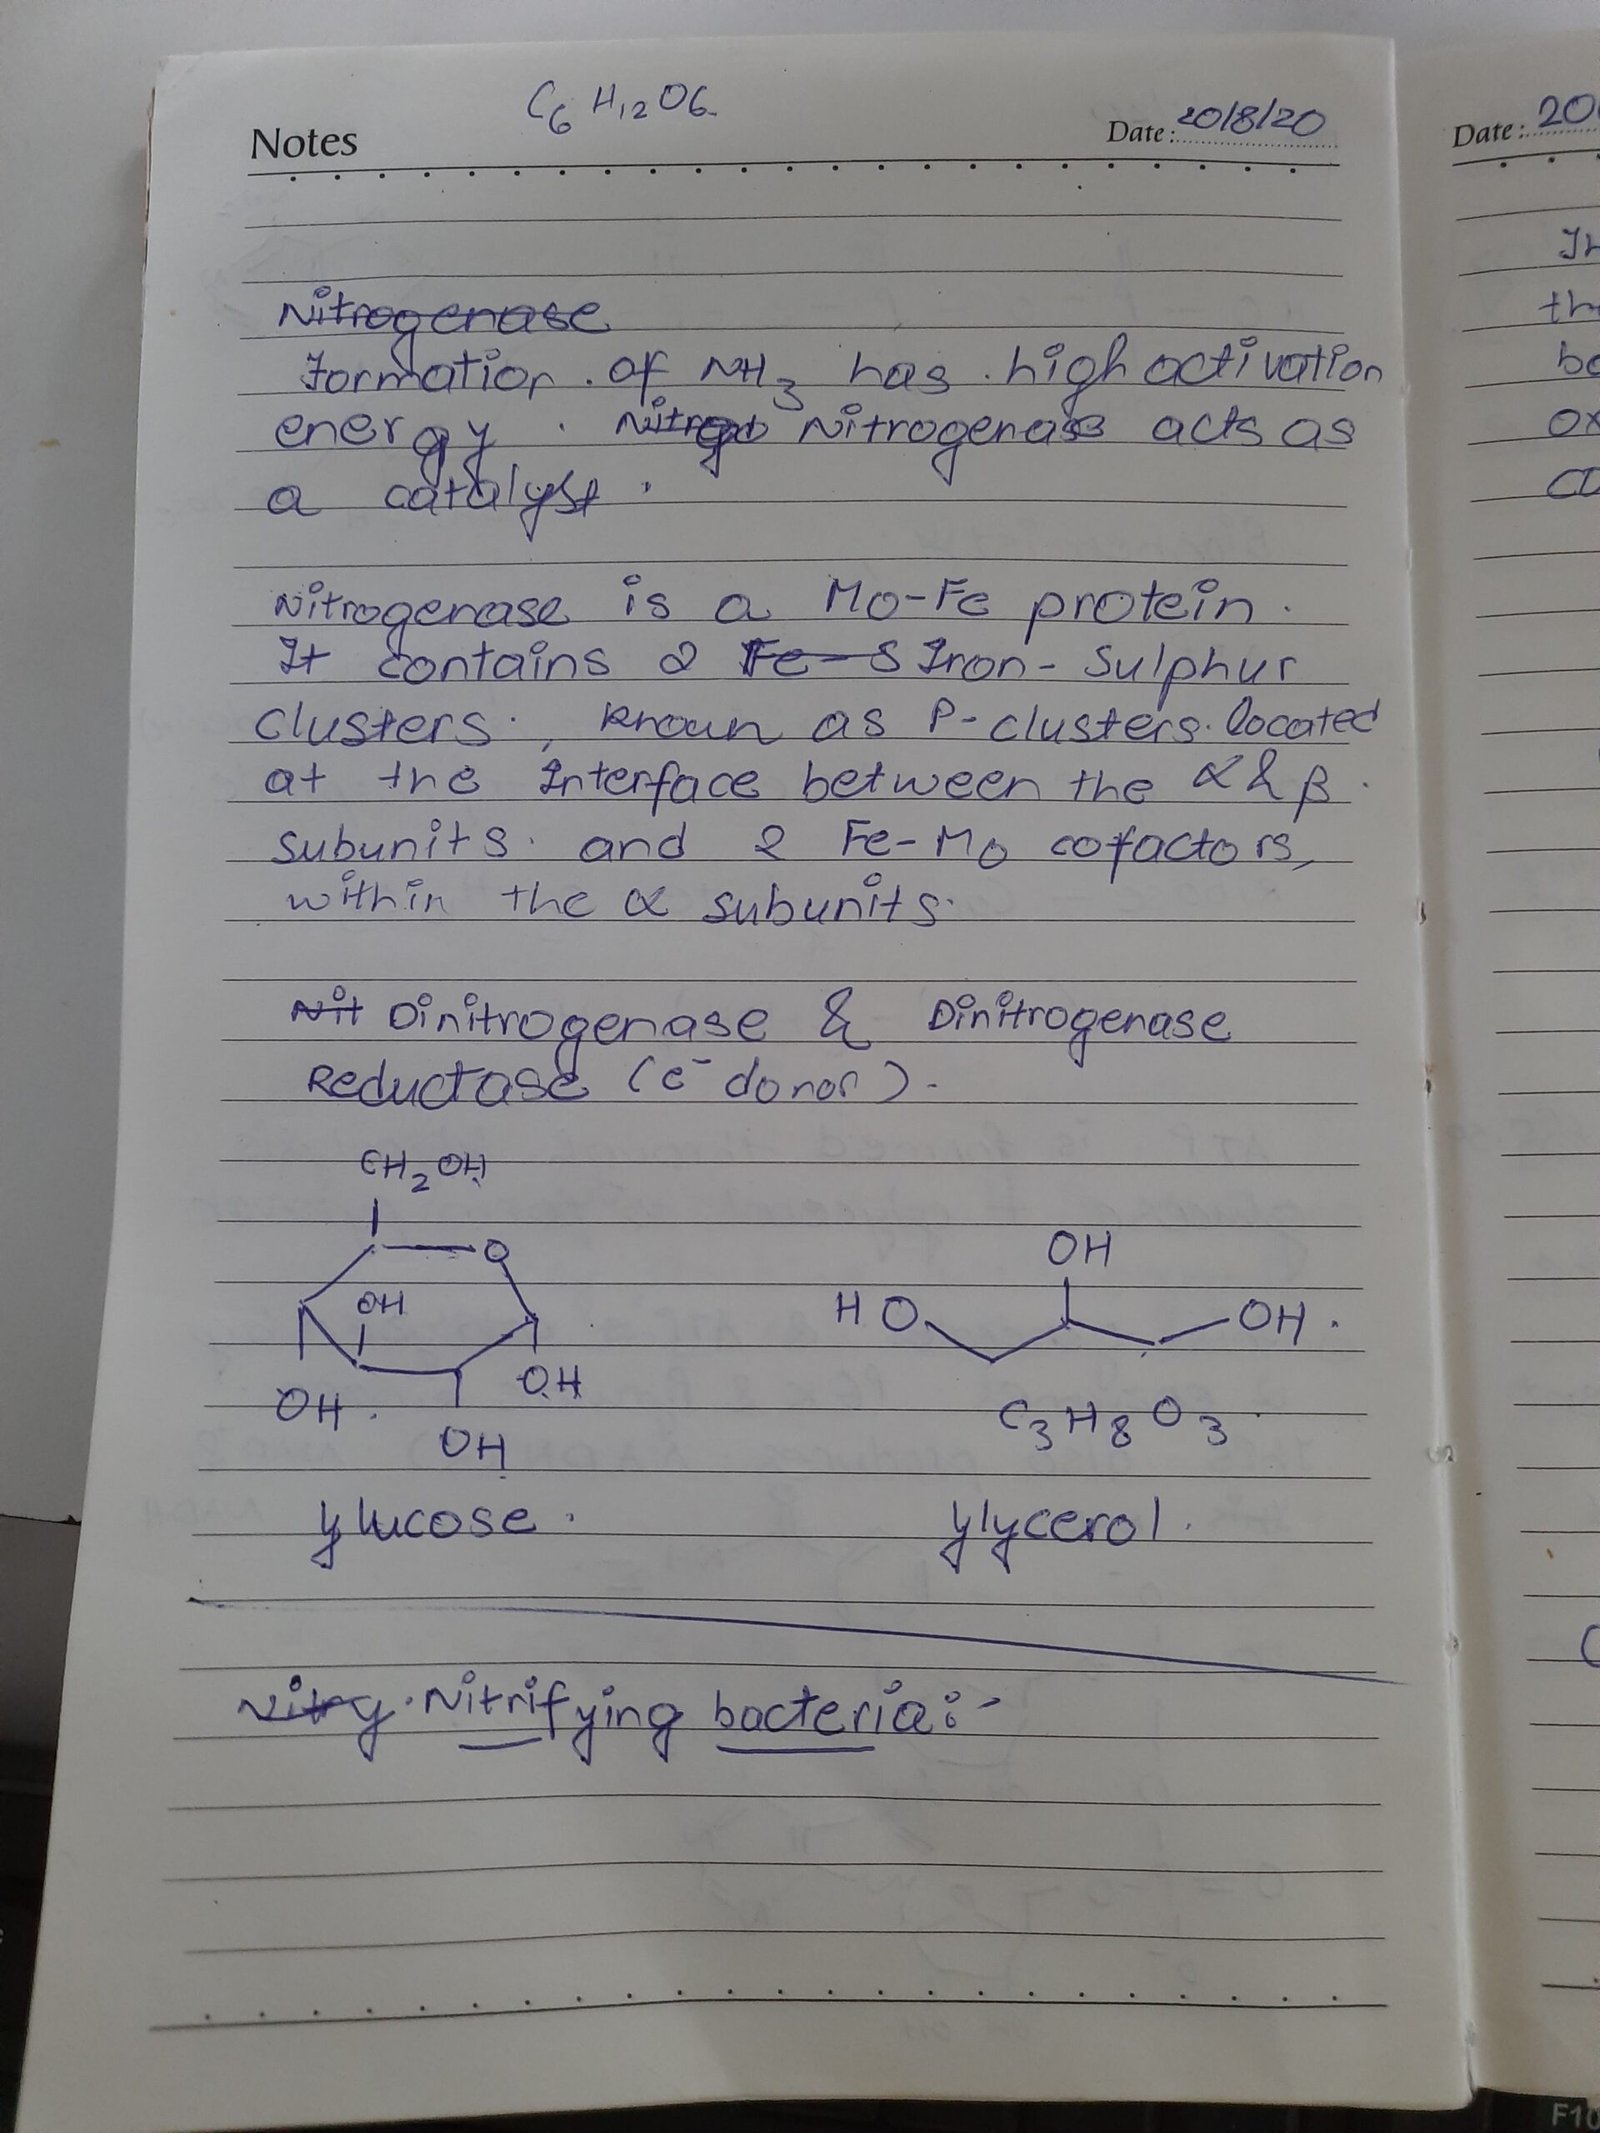 C6H12O6
Notes
Date: 20/8/20
Nitrogenase
Formation of NH3 has high activation
energy. Nitrogenase acts as
a catalyst.
Nitrogenase is a Mo-Fe protein.
It contains 2 Fe-S Iron-Sulphur
clusters, known as P-clusters located
at the Interface between the α & β
subunits and 2 Fe-Mo cofactors,
within the α subunits.
Nit Dinitrogenase & Dinitrogenase
Reductase (e- donor).
CH2OH
O
OH
OH
HO
OH
OH
OH
OH
C3H8O3
glucose.
glycerol.
Nitrifying bacteria:-
Date: 20
th
ox
F10